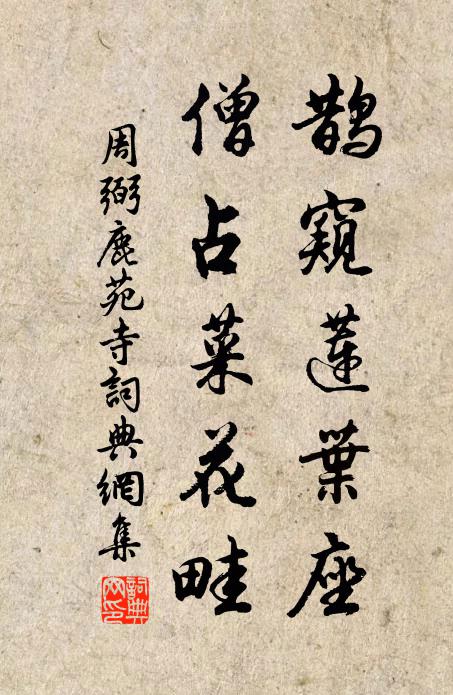 鵲窺蓮葉座
僧占菜花畦
周弼鹿苑寺詞典網集
詞典
网印